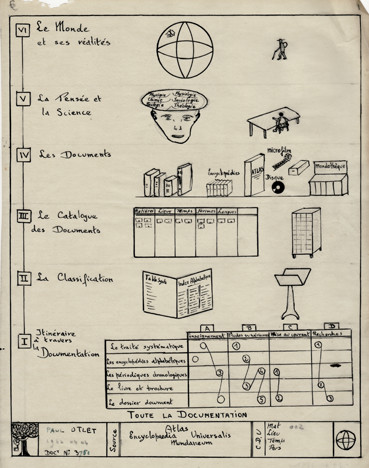 VI
Le Monde
et ses réalités
V
La Pensée et
la Science
IV
Les Documents
Encyclopédies
ATLAS
microfilm
Disque
Mondothèque
III
Le Catalogue
des Documents
Matière
Lieux
Temps
Formes
Langues
II
La Classification
Table
Index Alphabétique
I
Itinéraire
à travers
la Documentation
A B C D
Enseignement
Le traité systématique
Les encyclopédies alphabétiques
Les périodiques chronologiques
Le livre et brochure
Le dossier document
TOUTE LA DOCUMENTATION
PAUL OTLET
Doc† N°
Source
Atlas
Encyclopaedia Universalis
Mundaneum
Mat
Lieu
Temps